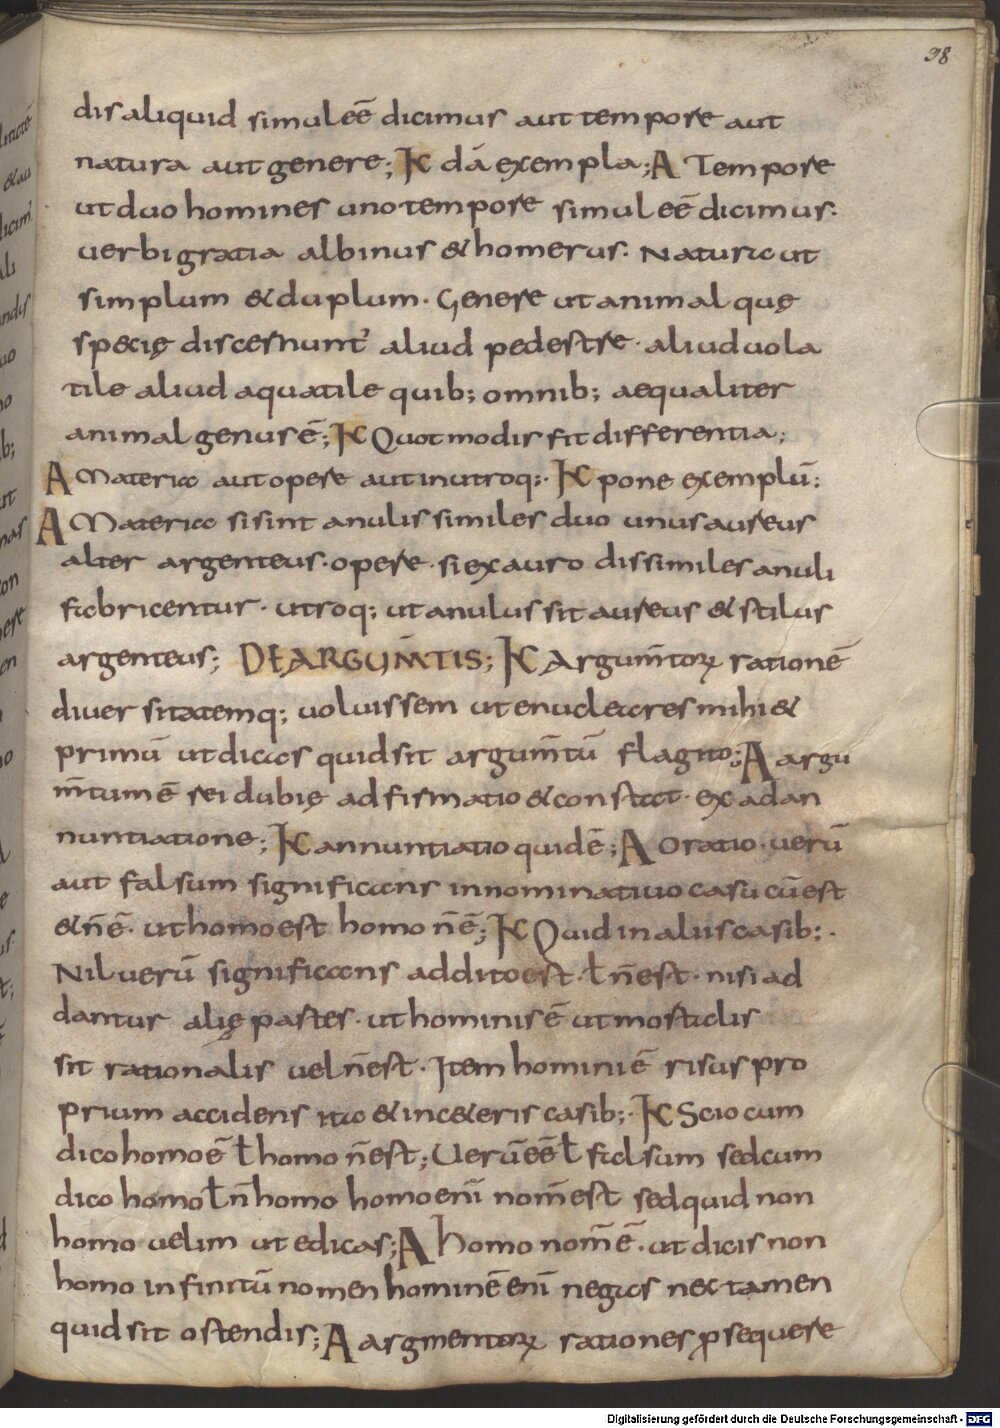 98
dis aliquid simul eē dicimus aut tempore aut
natura aut genere; K dā exempla; A Tempore
ut duo homines uno tempore simul eē dicimus.
uerbi gratia albinus & homerus. Natura ut
simplum & duplum. Genere ut animal quę
sp&ię discernunt᷒ aliud pedestre. aliud uola
tile aliud aquatile quib; omnib; aequaliter
animal genus ē; K Quot modis fit differentia;
A Materia aut opere aut in utroq;. K pone exemplū;
A Materia si sint anuli similes duo unus aureus
alter argenteus. opere. si ex auro dissimiles anuli
fabricentur. utroq; ut anulus sit aureus & stilus
argenteus; DE ARGUM̄TIS; K Argum̄torꝝ rationē
diuersitatemq; uoluissem ut enuclears mihi &
primū ut dicas quid sit argum̄tū flagito; A argu
m̄tum ē rei dubię adfirmatio & constat. ex adan
nuntiatione; K annuntiatio quid ē; A Oratio. uerū
aut falsum significans in nominatiuo casu cū est
& n̄ ē. ut homo est homo n̄ ē; K Quid in aliis casib;.
Nil uerū significans addito est. ł n̄ est. nisi ad
dantur alię partes. ut hominis ē ut mortalis
sit rationalis uel n̄ est. Item homini ē risus pro
prium accidens ita & in c&eris casib;. K Scio cum
dico homo ē ł homo n̄ est; Uerū eē ł falsum sed cum
dico homo ł n̄ homo homo enī nom̄ est sed quid non
homo uelim ut edicas; A homo nom̄ ē. ut dicis non
homo infinitū nomen hominē enī negas nec tamen
quid sit ostendis; A argmentorꝝ rationes ꝓsequere
Digitalisierung gefördert durch die Deutsche Forschungsgemeinschaft - DFG